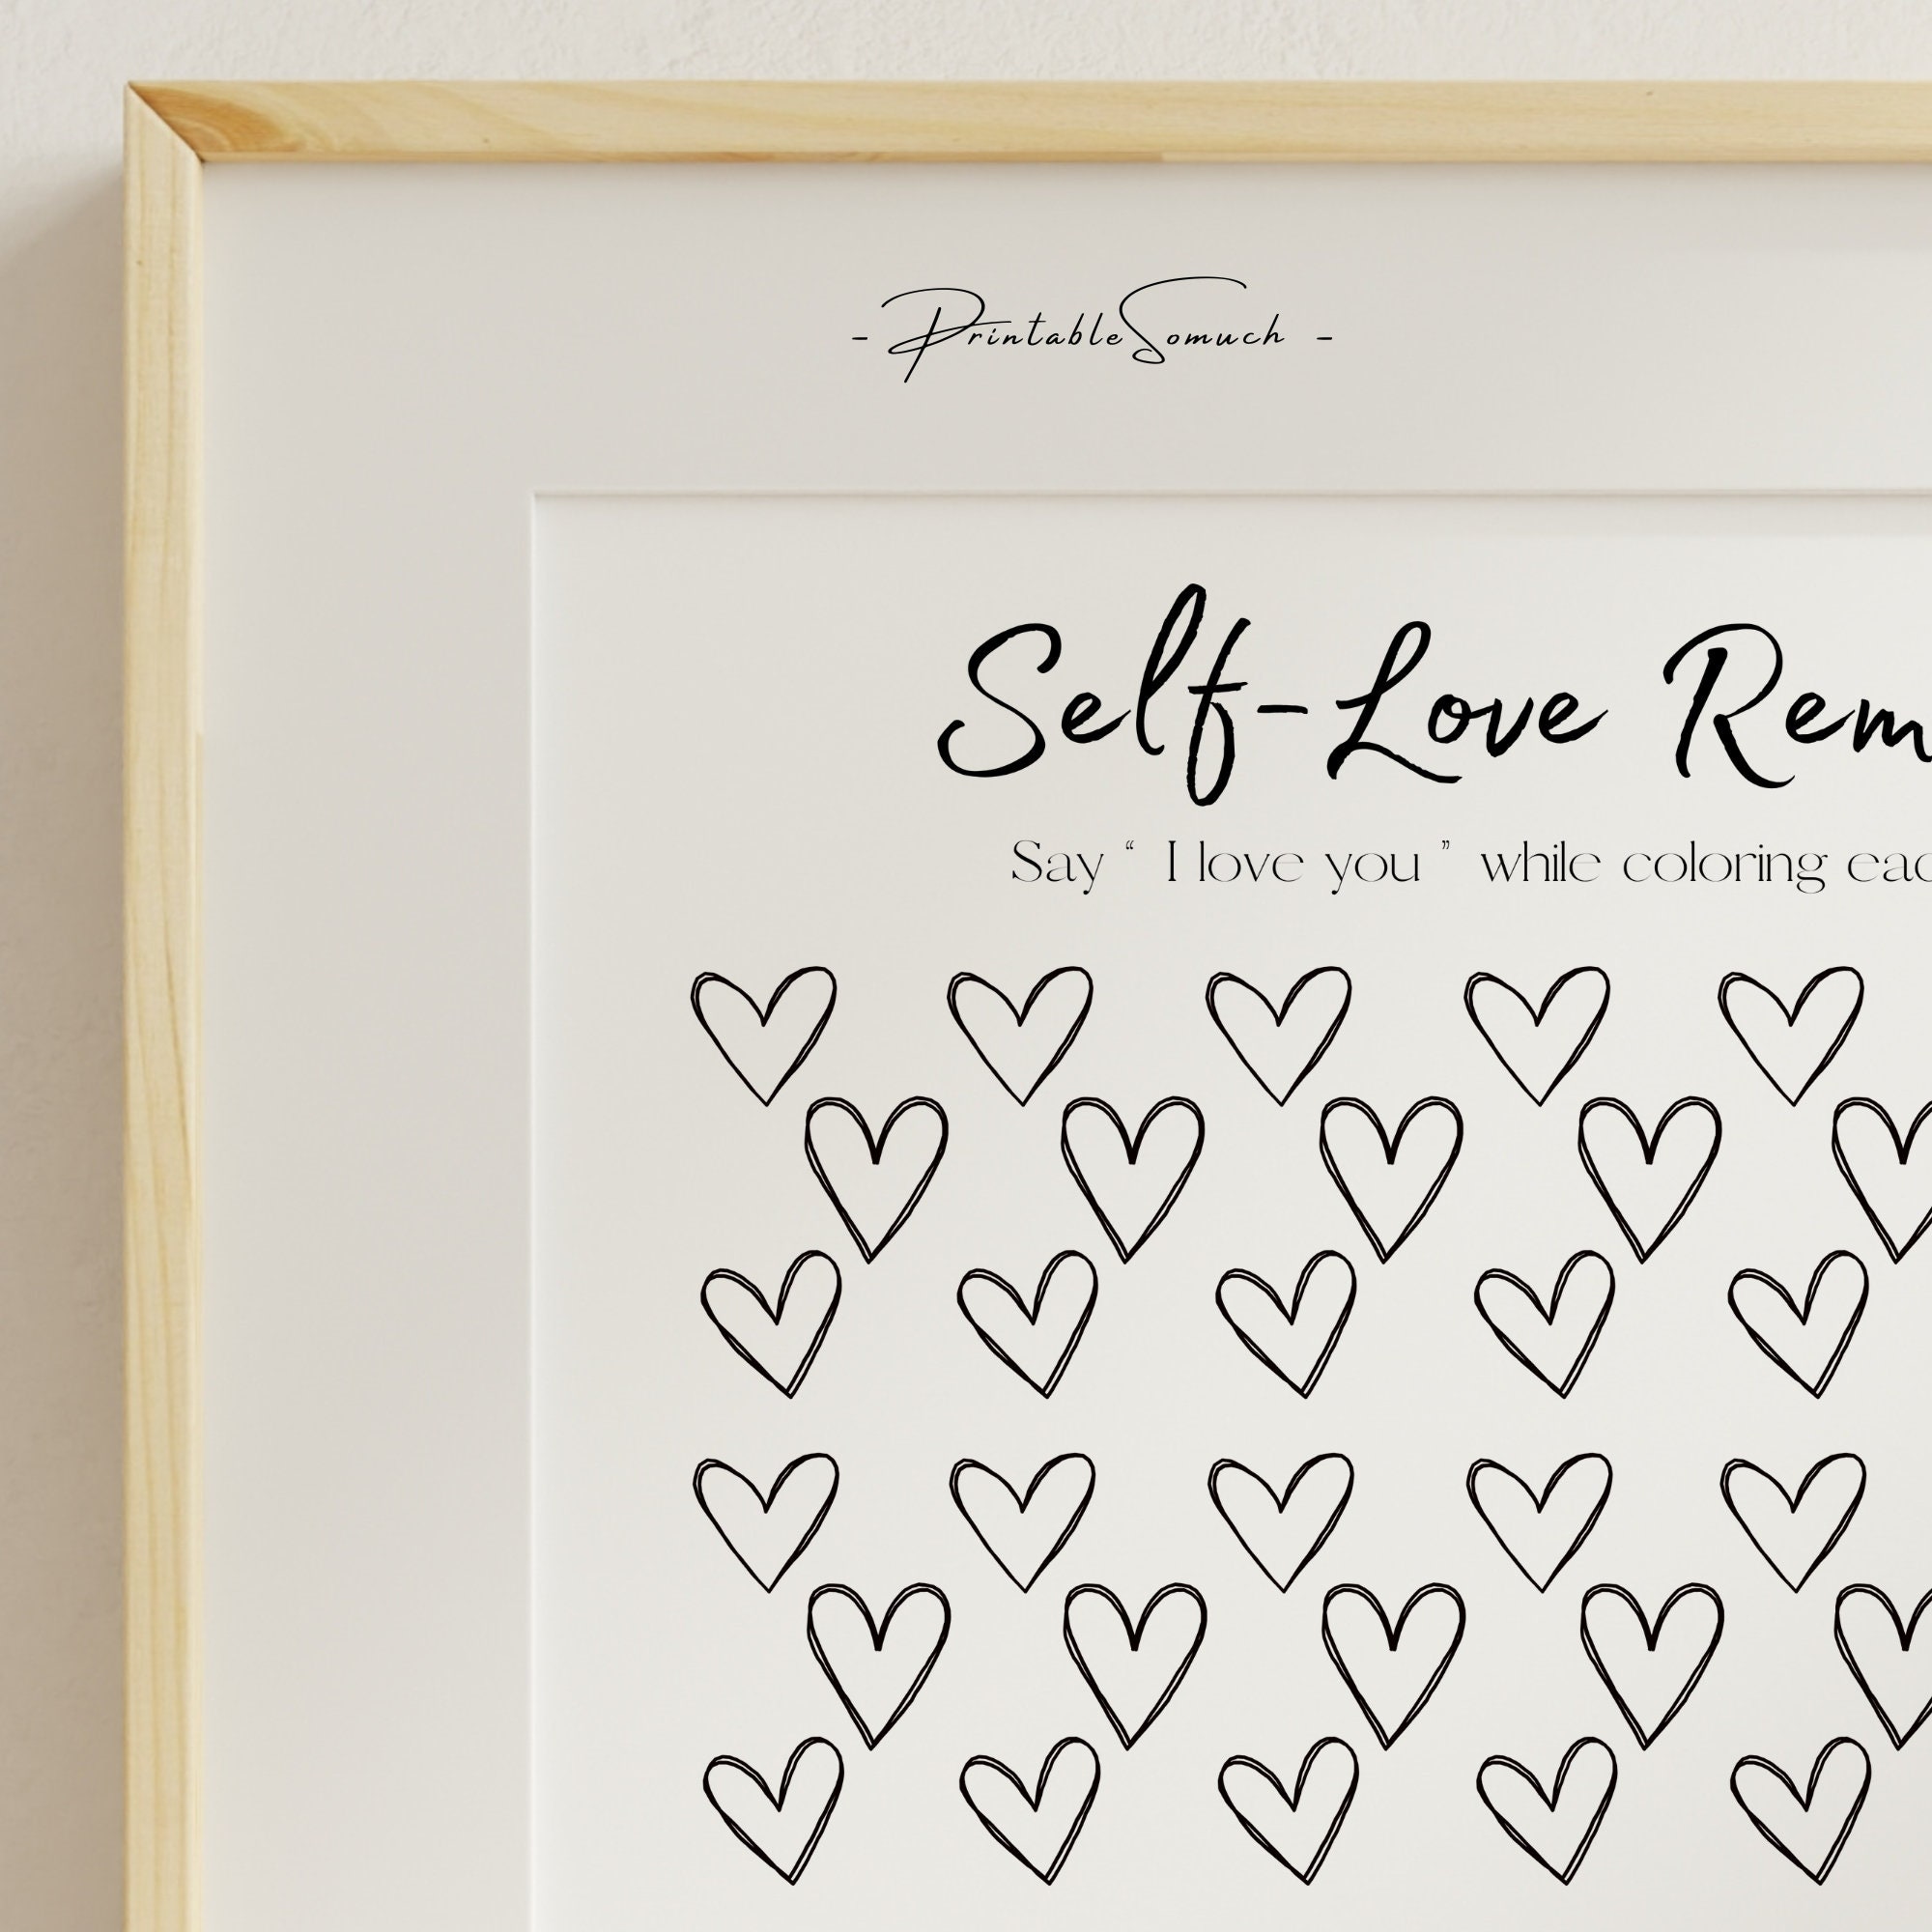 - PrintableSomuch -
Self-Love Rem
Say “ I love you ” while coloring eac